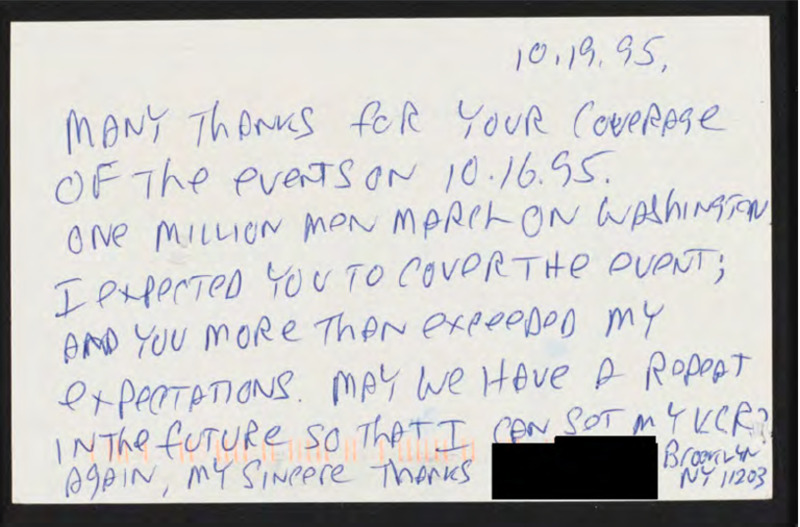 10.19.95.
MANY THANKS FOR YOUR COVERAGE
OF THE EVENTS ON 10.16.95.
ONE MILLION MEN MARCH ON WASHINGTON.
I EXPECTED YOU TO COVER THE EVENT;
AND YOU MORE THAN EXCEEDED MY
EXPECTATIONS. MAY WE HAVE A REPEAT
IN THE FUTURE SO THAT I CAN SET MY VCR?
AGAIN, MY SINCERE THANKS
BROOKLYN
NY 11203